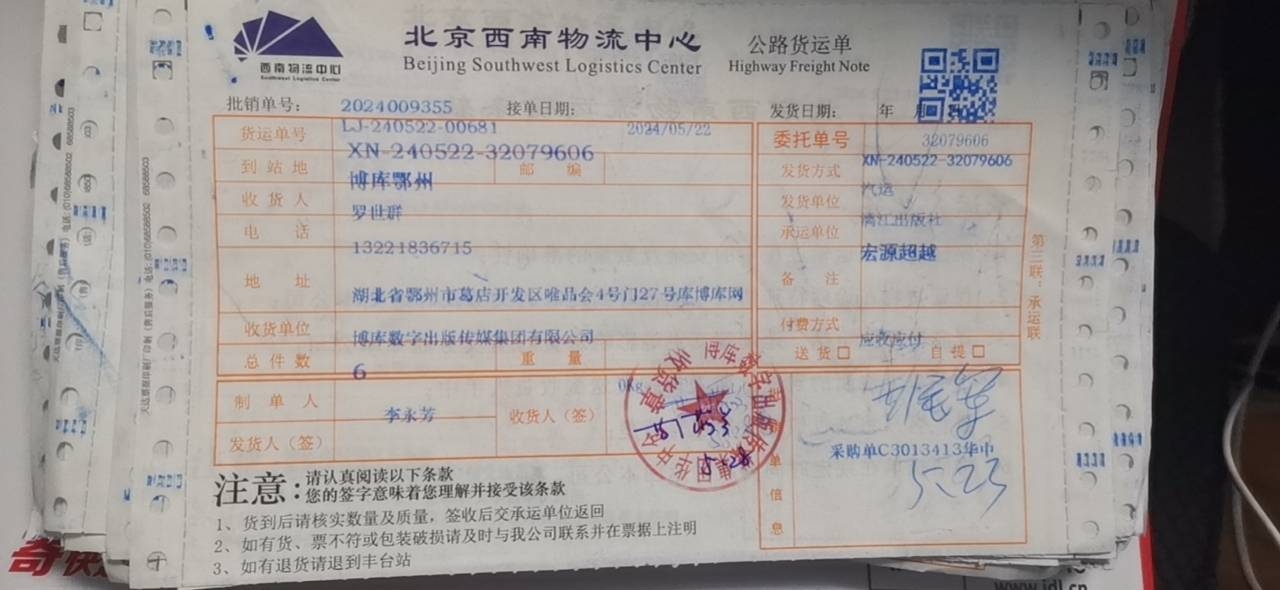 西南物流中心
Southwest Logistics Center
北京西南物流中心
Beijing Southwest Logistics Center
公路货运单
Highway Freight Note
批销单号: 2024009355 接单日期: 发货日期: 年 月
货运单号 LJ-240522-00681 2024/05/22 委托单号 32079606
XN-240522-32079606 XN-240522-32079606
到站地 博库鄂州 邮编 发货方式 汽运
收货人 罗世群 发货单位 漓江出版社
电话 13221836715 承运单位 宏源超越
地址 湖北省鄂州市葛店开发区唯品会4号门27号库博库网 备注
收货单位 博库数字出版传媒集团有限公司 付费方式 应收应付
总件数 6 重量 送货□ 自提□
制单人 李永芳 收货人(签)
发货人(签)
采购单C3013413华中
5.23
5.28
单信息
第三联:承运联
注意: 请认真阅读以下条款
您的签字意味着您理解并接受该条款
1、货到后请核实数量及质量，签收后交承运单位返回
2、如有货、票不符或包装破损请及时与我公司联系并在票据上注明
3、如有退货请退到丰台站
www.jdl.cn